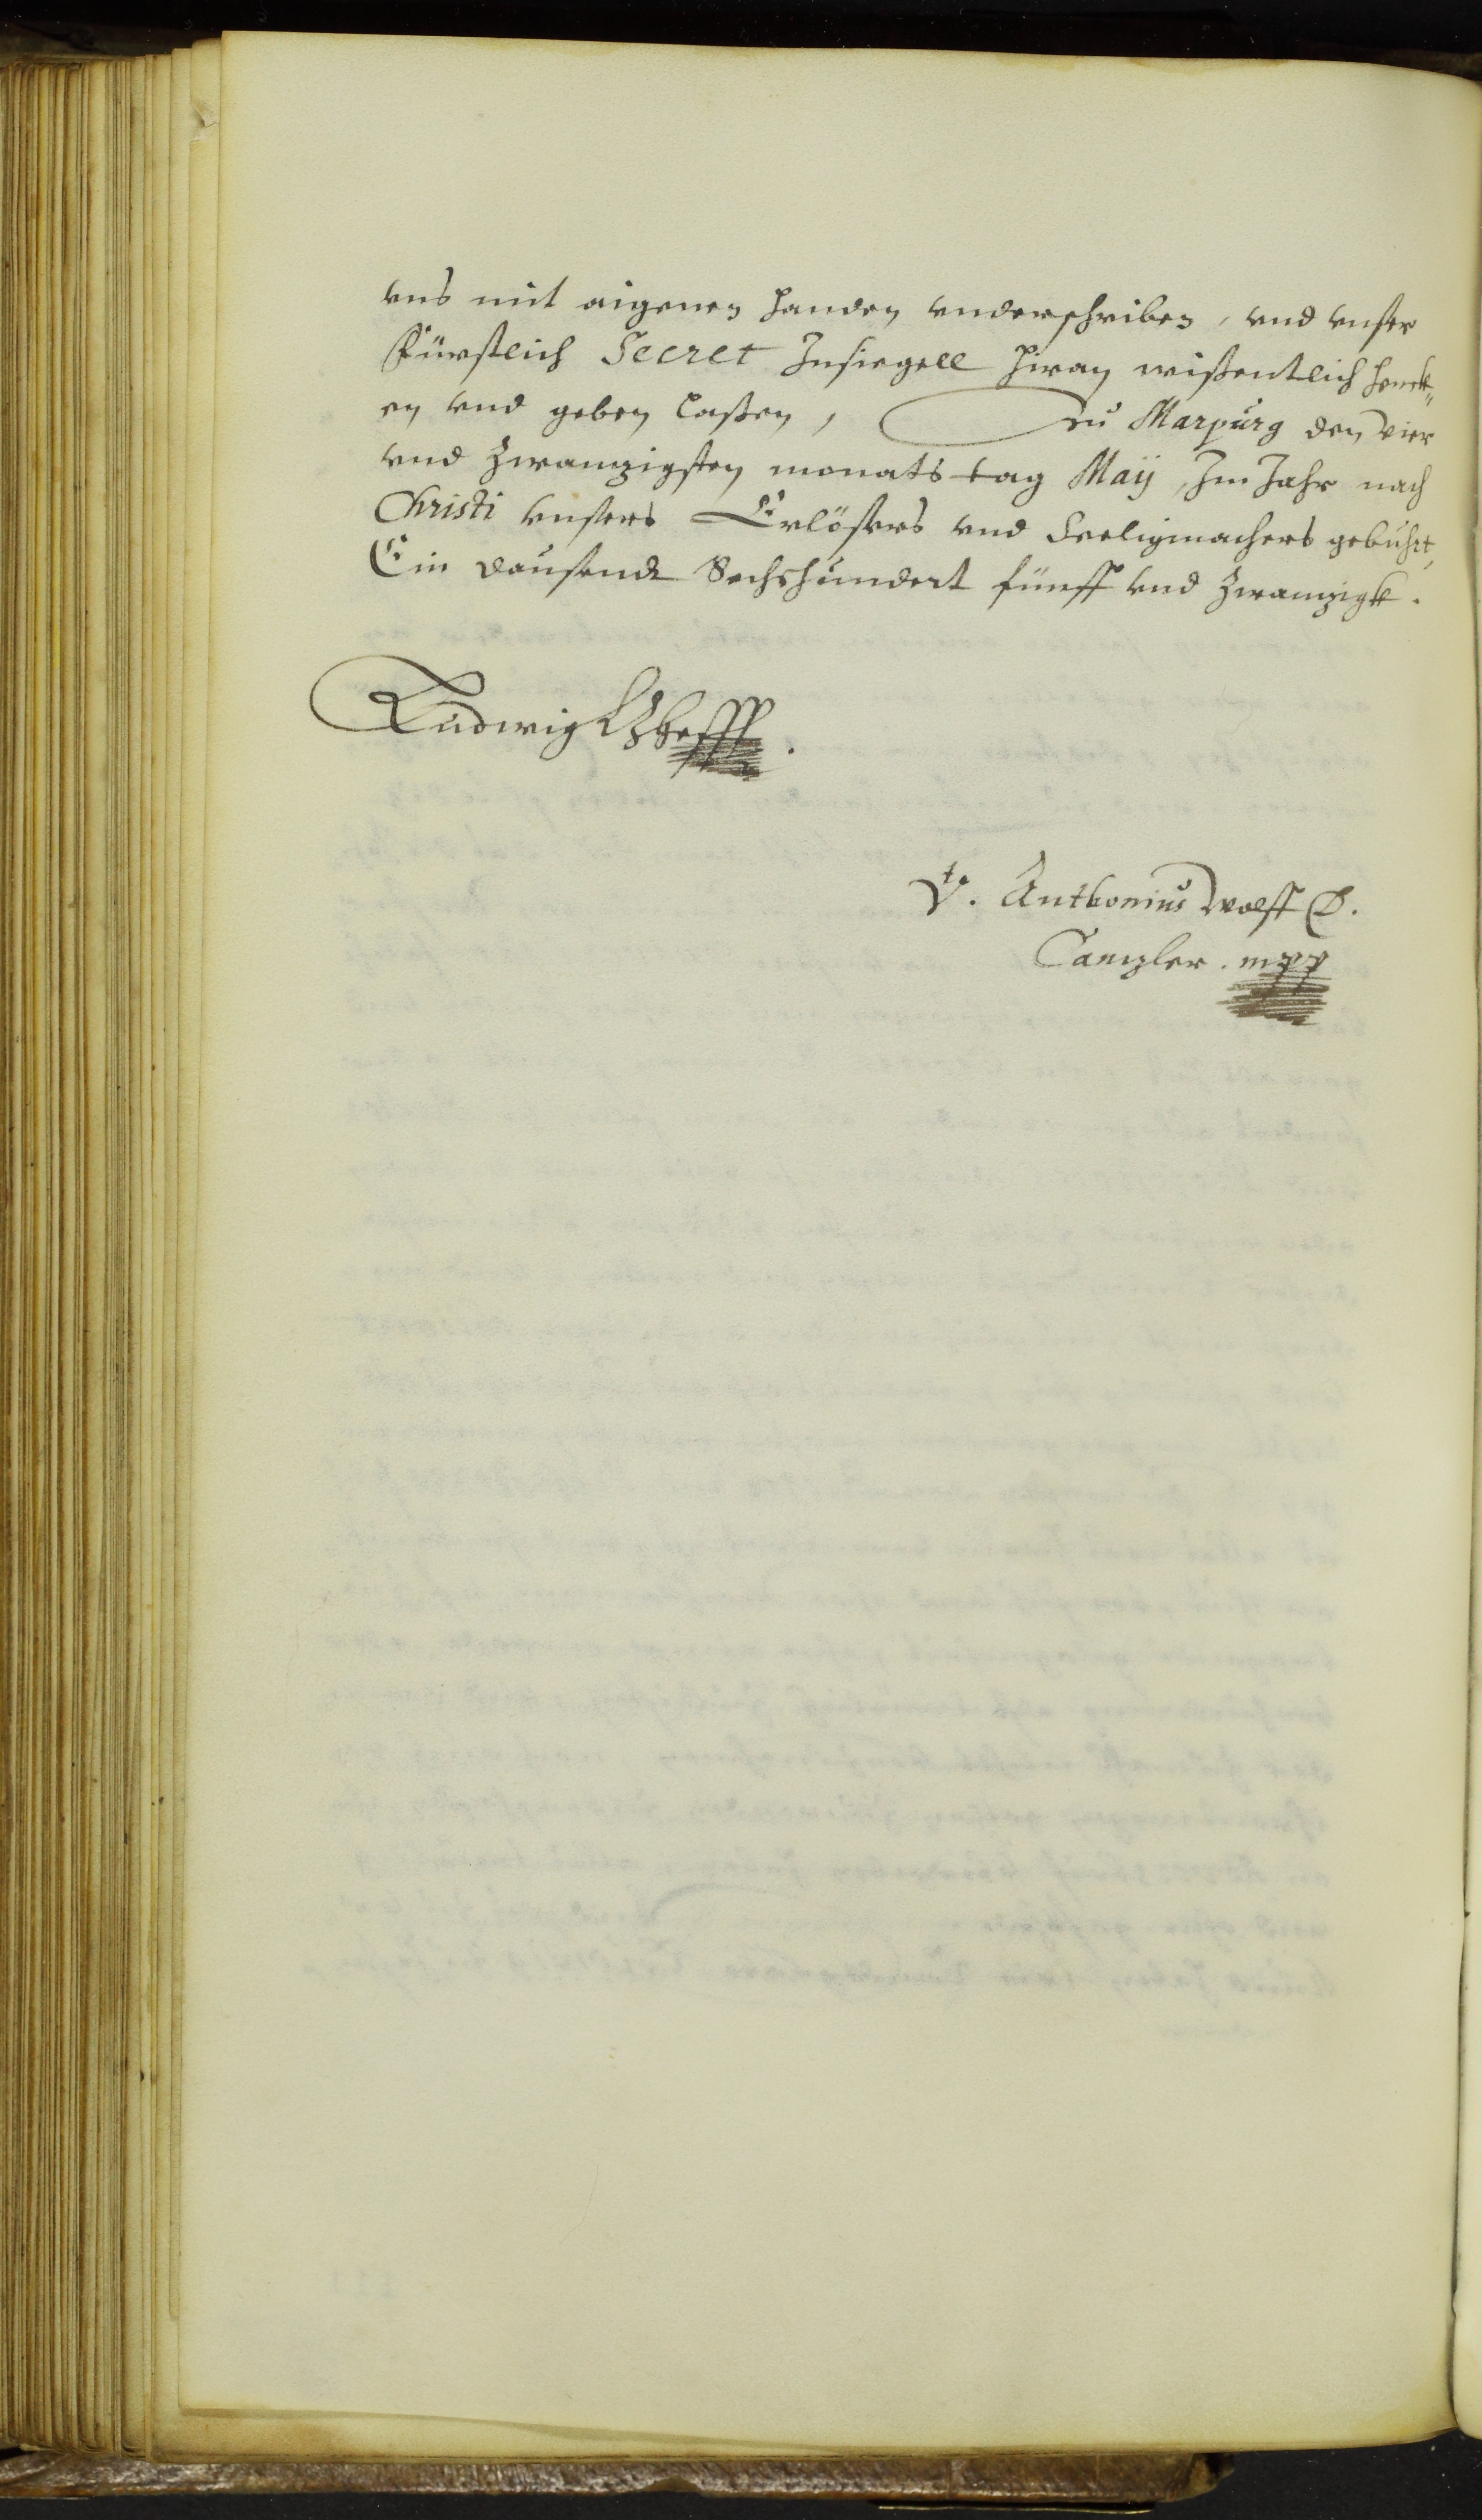 vns mit aigenen handen vnderschriben, vnd vnser
Fürstlich Secret Insiegell hiran wißentlich henck„
en vnd geben laßen, Zu Marpurg den vier
vnd zwanzigsten monats tag Maij, Im Jahr nach
Christi vnsers Erlösers vnd Seeligmachers gebuhrt,
Ein dausendt Sechshundert fünff vnd zwanzigk.
Ludwig LZheſſſ.
Vt. Anthonius Wolff D.
Canzler. mpp